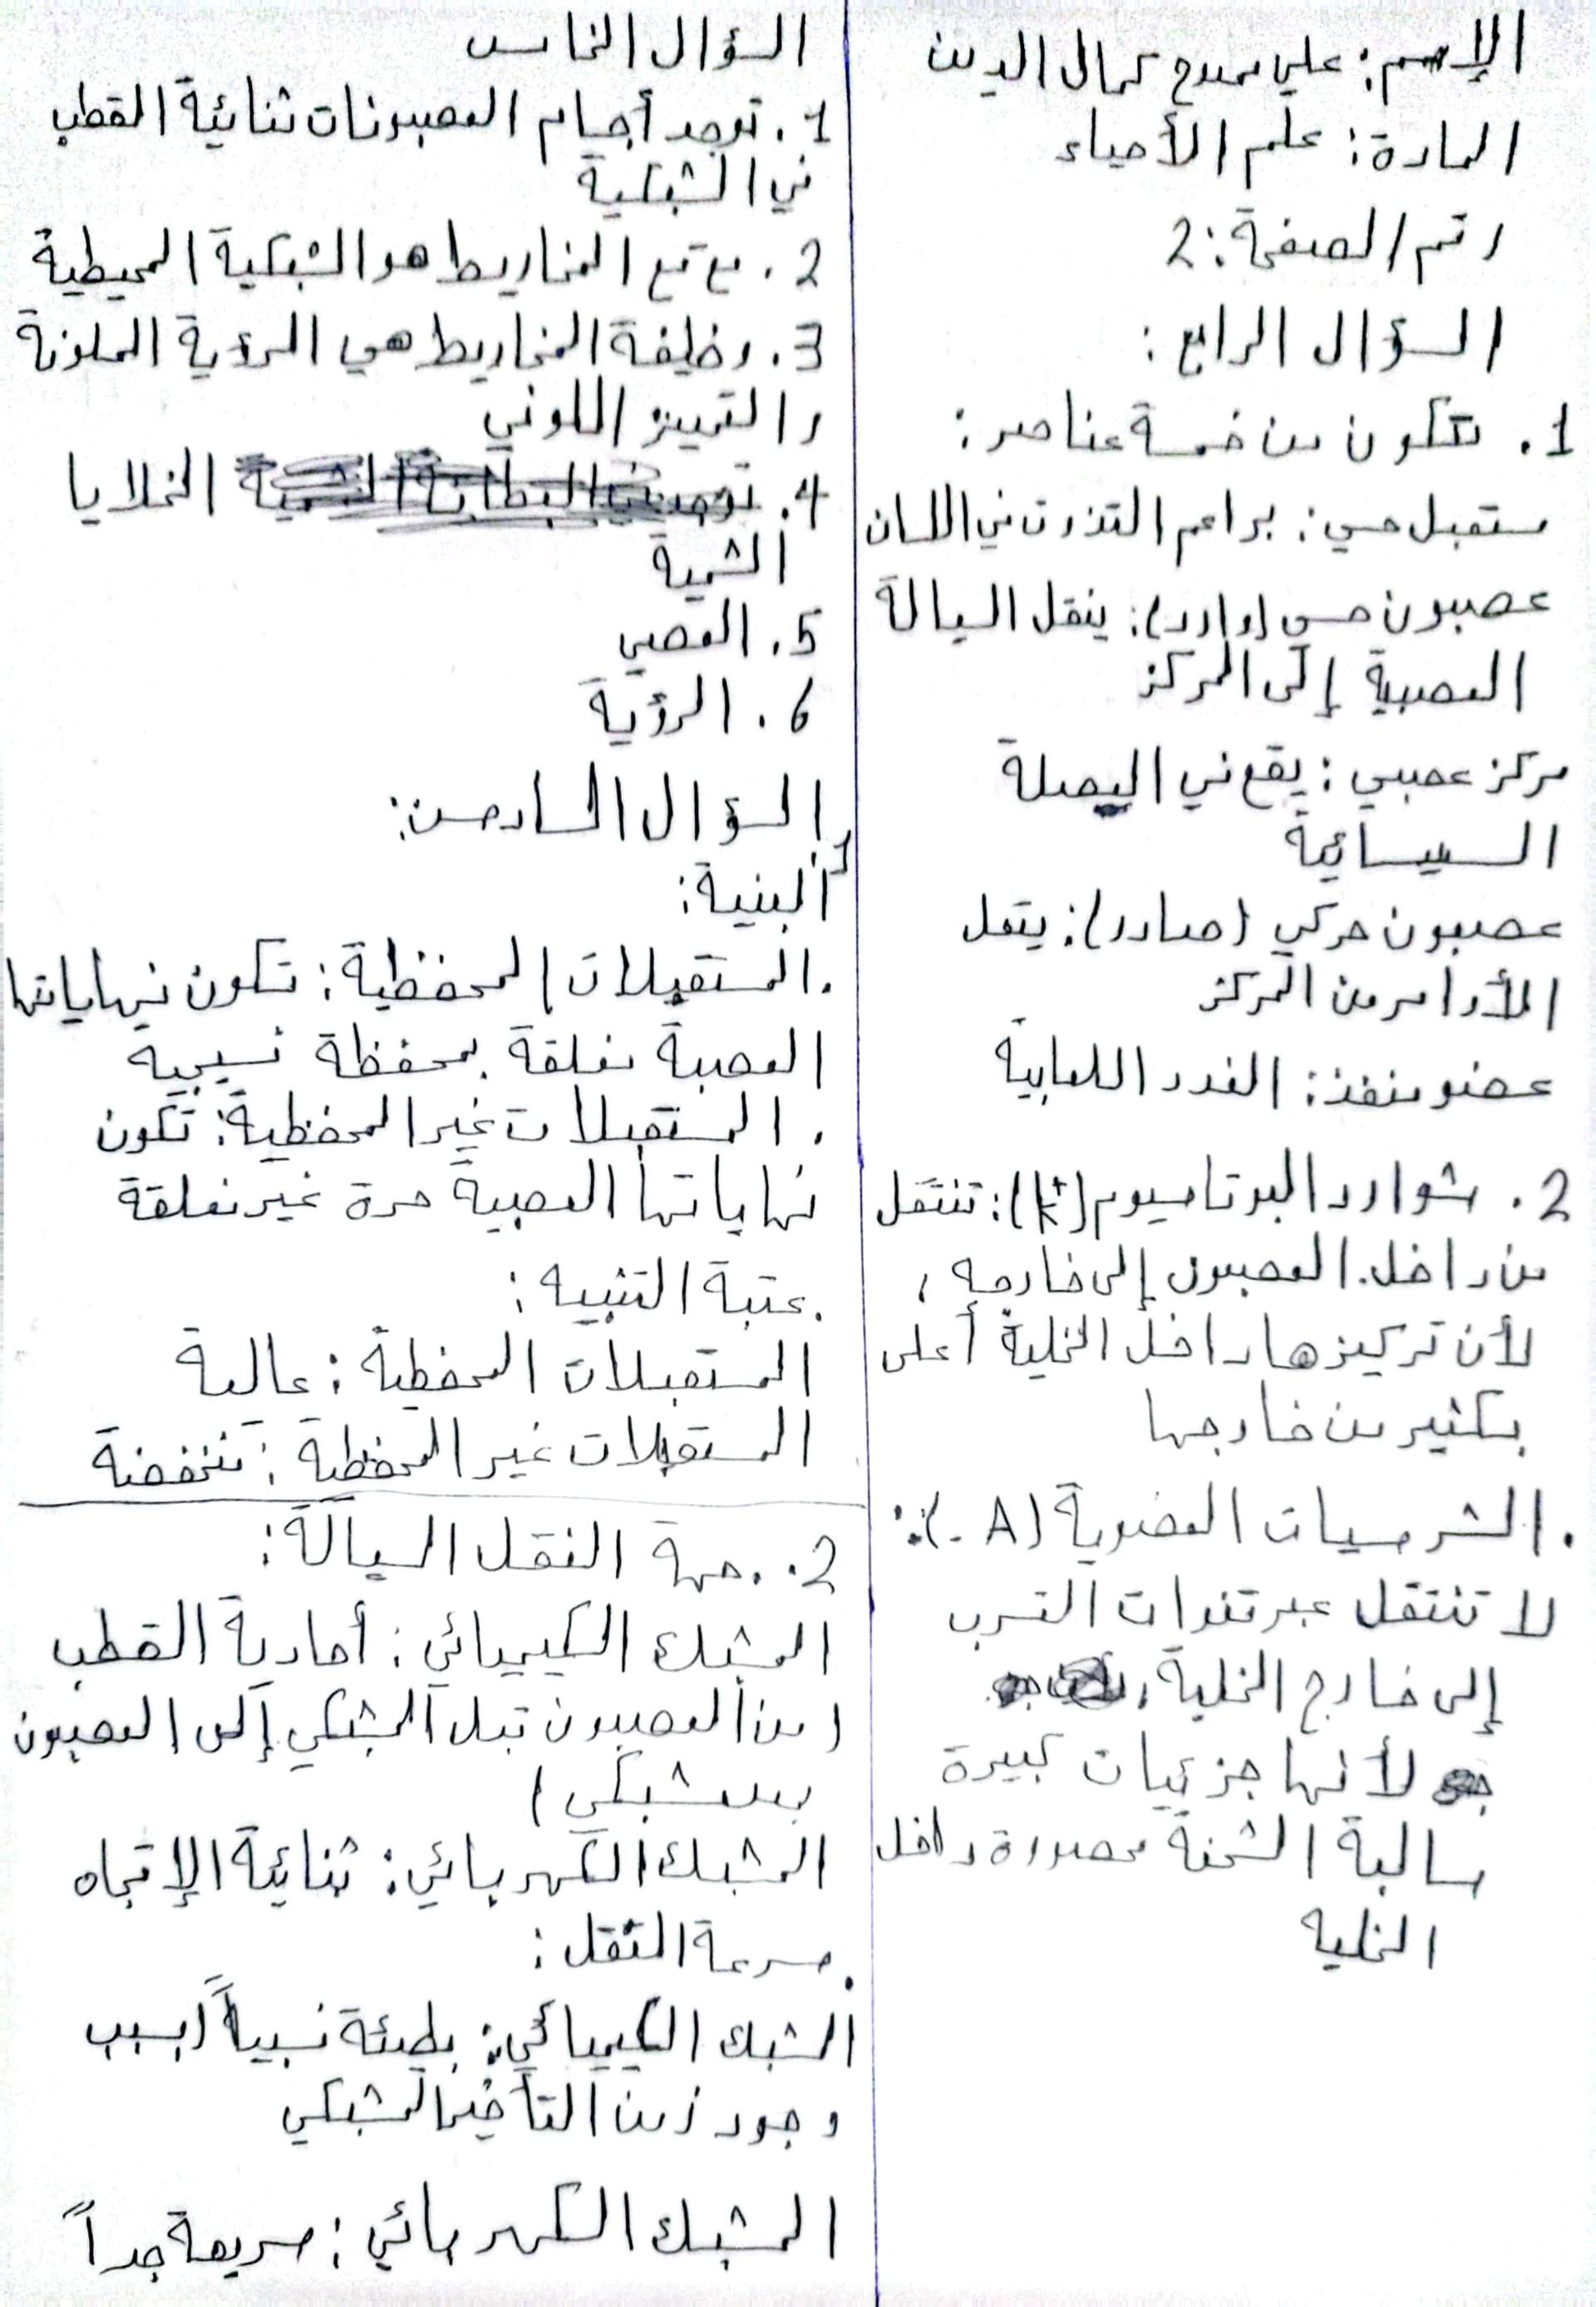 الإسم: علي ممدوح كمال الدين
المادة: علم الأحياء
رقم الصفحة: 2
السؤال الرابع:
1. تتكون من خمسة عناصر:
مستقبل حسي: براعم التذوق في اللسان
عصبون حسي (وارد): ينقل السيالة
العصبية إلى المركز
مركز عصبي: يقع في البصلة
السيسائية
عصبون حركي (صادر): ينقل
الأوامر من المركز
عضو منفذ: الغدد اللعابية
2. شوارد البوتاسيوم (K+): تنتقل
من داخل العصبون إلى خارجه،
لأن تركيزها داخل الخلية أعلى
بكثير من خارجها
. الشرسبات العضوية (A-):
لا تنتقل عبر قنوات التسرب
إلى خارج الخلية،
لأنها جزيئات كبيرة
سالبة الشحنة محصورة داخل
الخلية
السؤال الخامس
1. توجد أجسام العصبونات ثنائية القطب
في الشبكية
2. موقع المخاريط هو الشبكية المحيطية
3. وظيفة المخاريط هي الرؤية الملونة
والتمييز اللوني
4. الخلايا
الشمية
5. العصي
6. الرؤية
السؤال السادس:
1 البنية:
. المستقبلات المحفظية: تكون نهاياتها
العصبة مغلقة بمحفظة نسيجية
. المستقبلات غير المحفظية: تكون
نهاياتها العصبية حرة غير مغلقة
. عتبة التنبيه:
المستقبلات المحفظية: عالية
المستقبلات غير المحفظية: منخفضة
2. . جهة النقل السيالة:
المشبك الكيميائي: أحادية القطب
(من العصبون قبل المشبكي إلى العصبون
بعد مشبكي)
المشبك الكهربائي: ثنائية الإتجاه
. سرعة النقل:
الشبك الكيميائي: بطيئة نسبياً (بسبب
وجود زمن التأخير المشبكي
المشبك الكهربائي: سريعة جداً